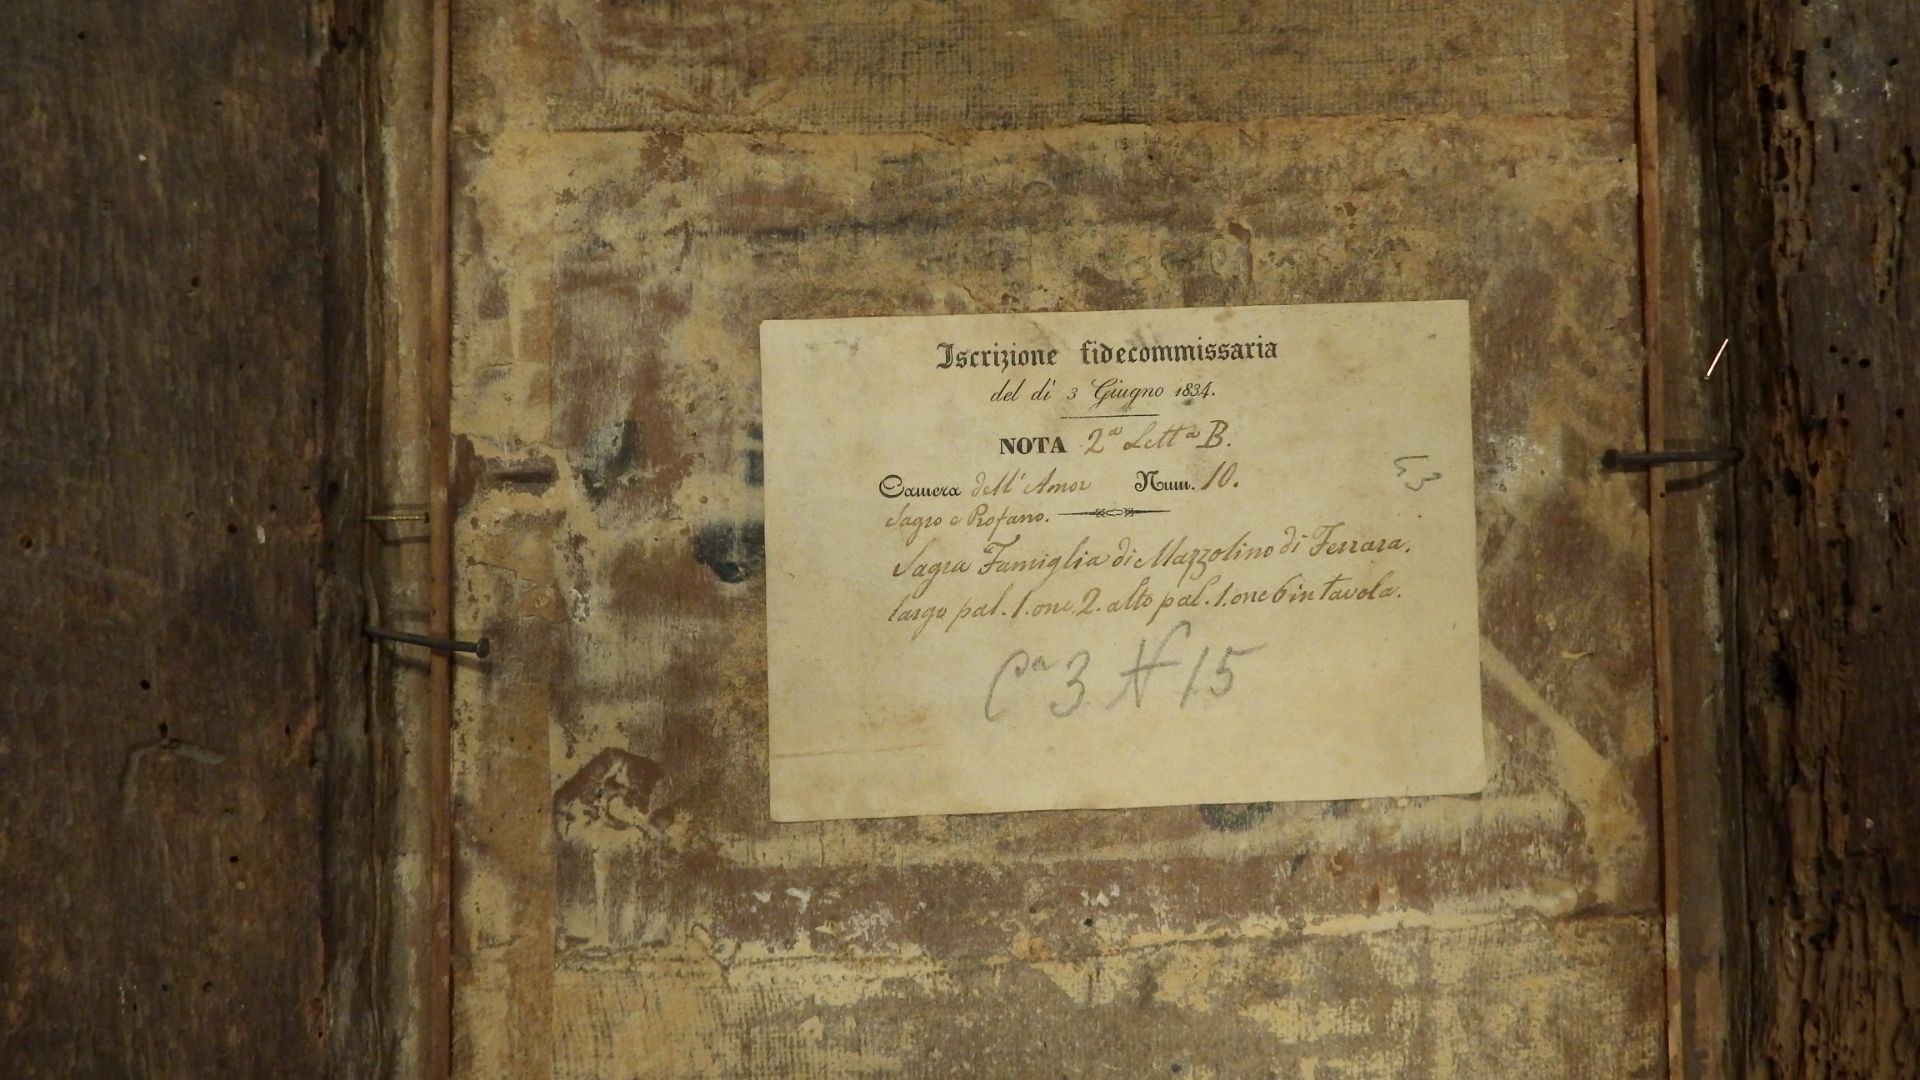 Iscrizione fidecommissaria
del dì 3 Giugno 1834.
NOTA 2ª Lettª B.
Camera dell'Amor Num. 10.
Sagro e Profano.
43
Sagra Famiglia di Mazzolino di Ferrara.
largo pal. 1. onc. 2. alto pal. 1. onc 6 in tavola.
Cª 3 N 15